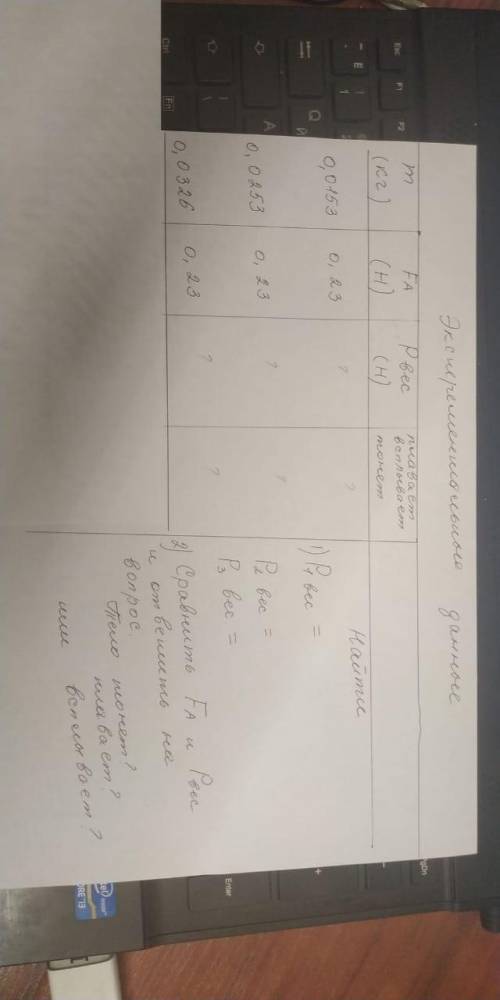 Эксперементально данные
m
(кг)
FA
(Н)
Pвес
(Н)
плавает
всплывает
тонет
0,0153 0,23 ? ?
0,0253 0,23 ? ?
0,0326 0,23 ? ?
Найти
1) P1 вес =
P2 вес =
P3 вес =
2) Сравнить FA и Pвес
и ответить на
вопрос.
Тело тонет?
плавает?
или всплывает?
Esc
F1
F2
Ctrl
Fn
Q
Й
A
Enter
PgDn